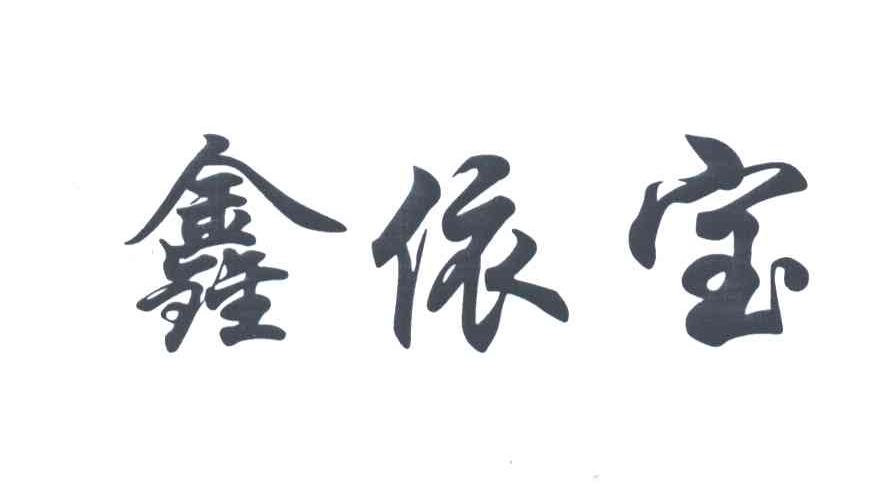 鑫依宝